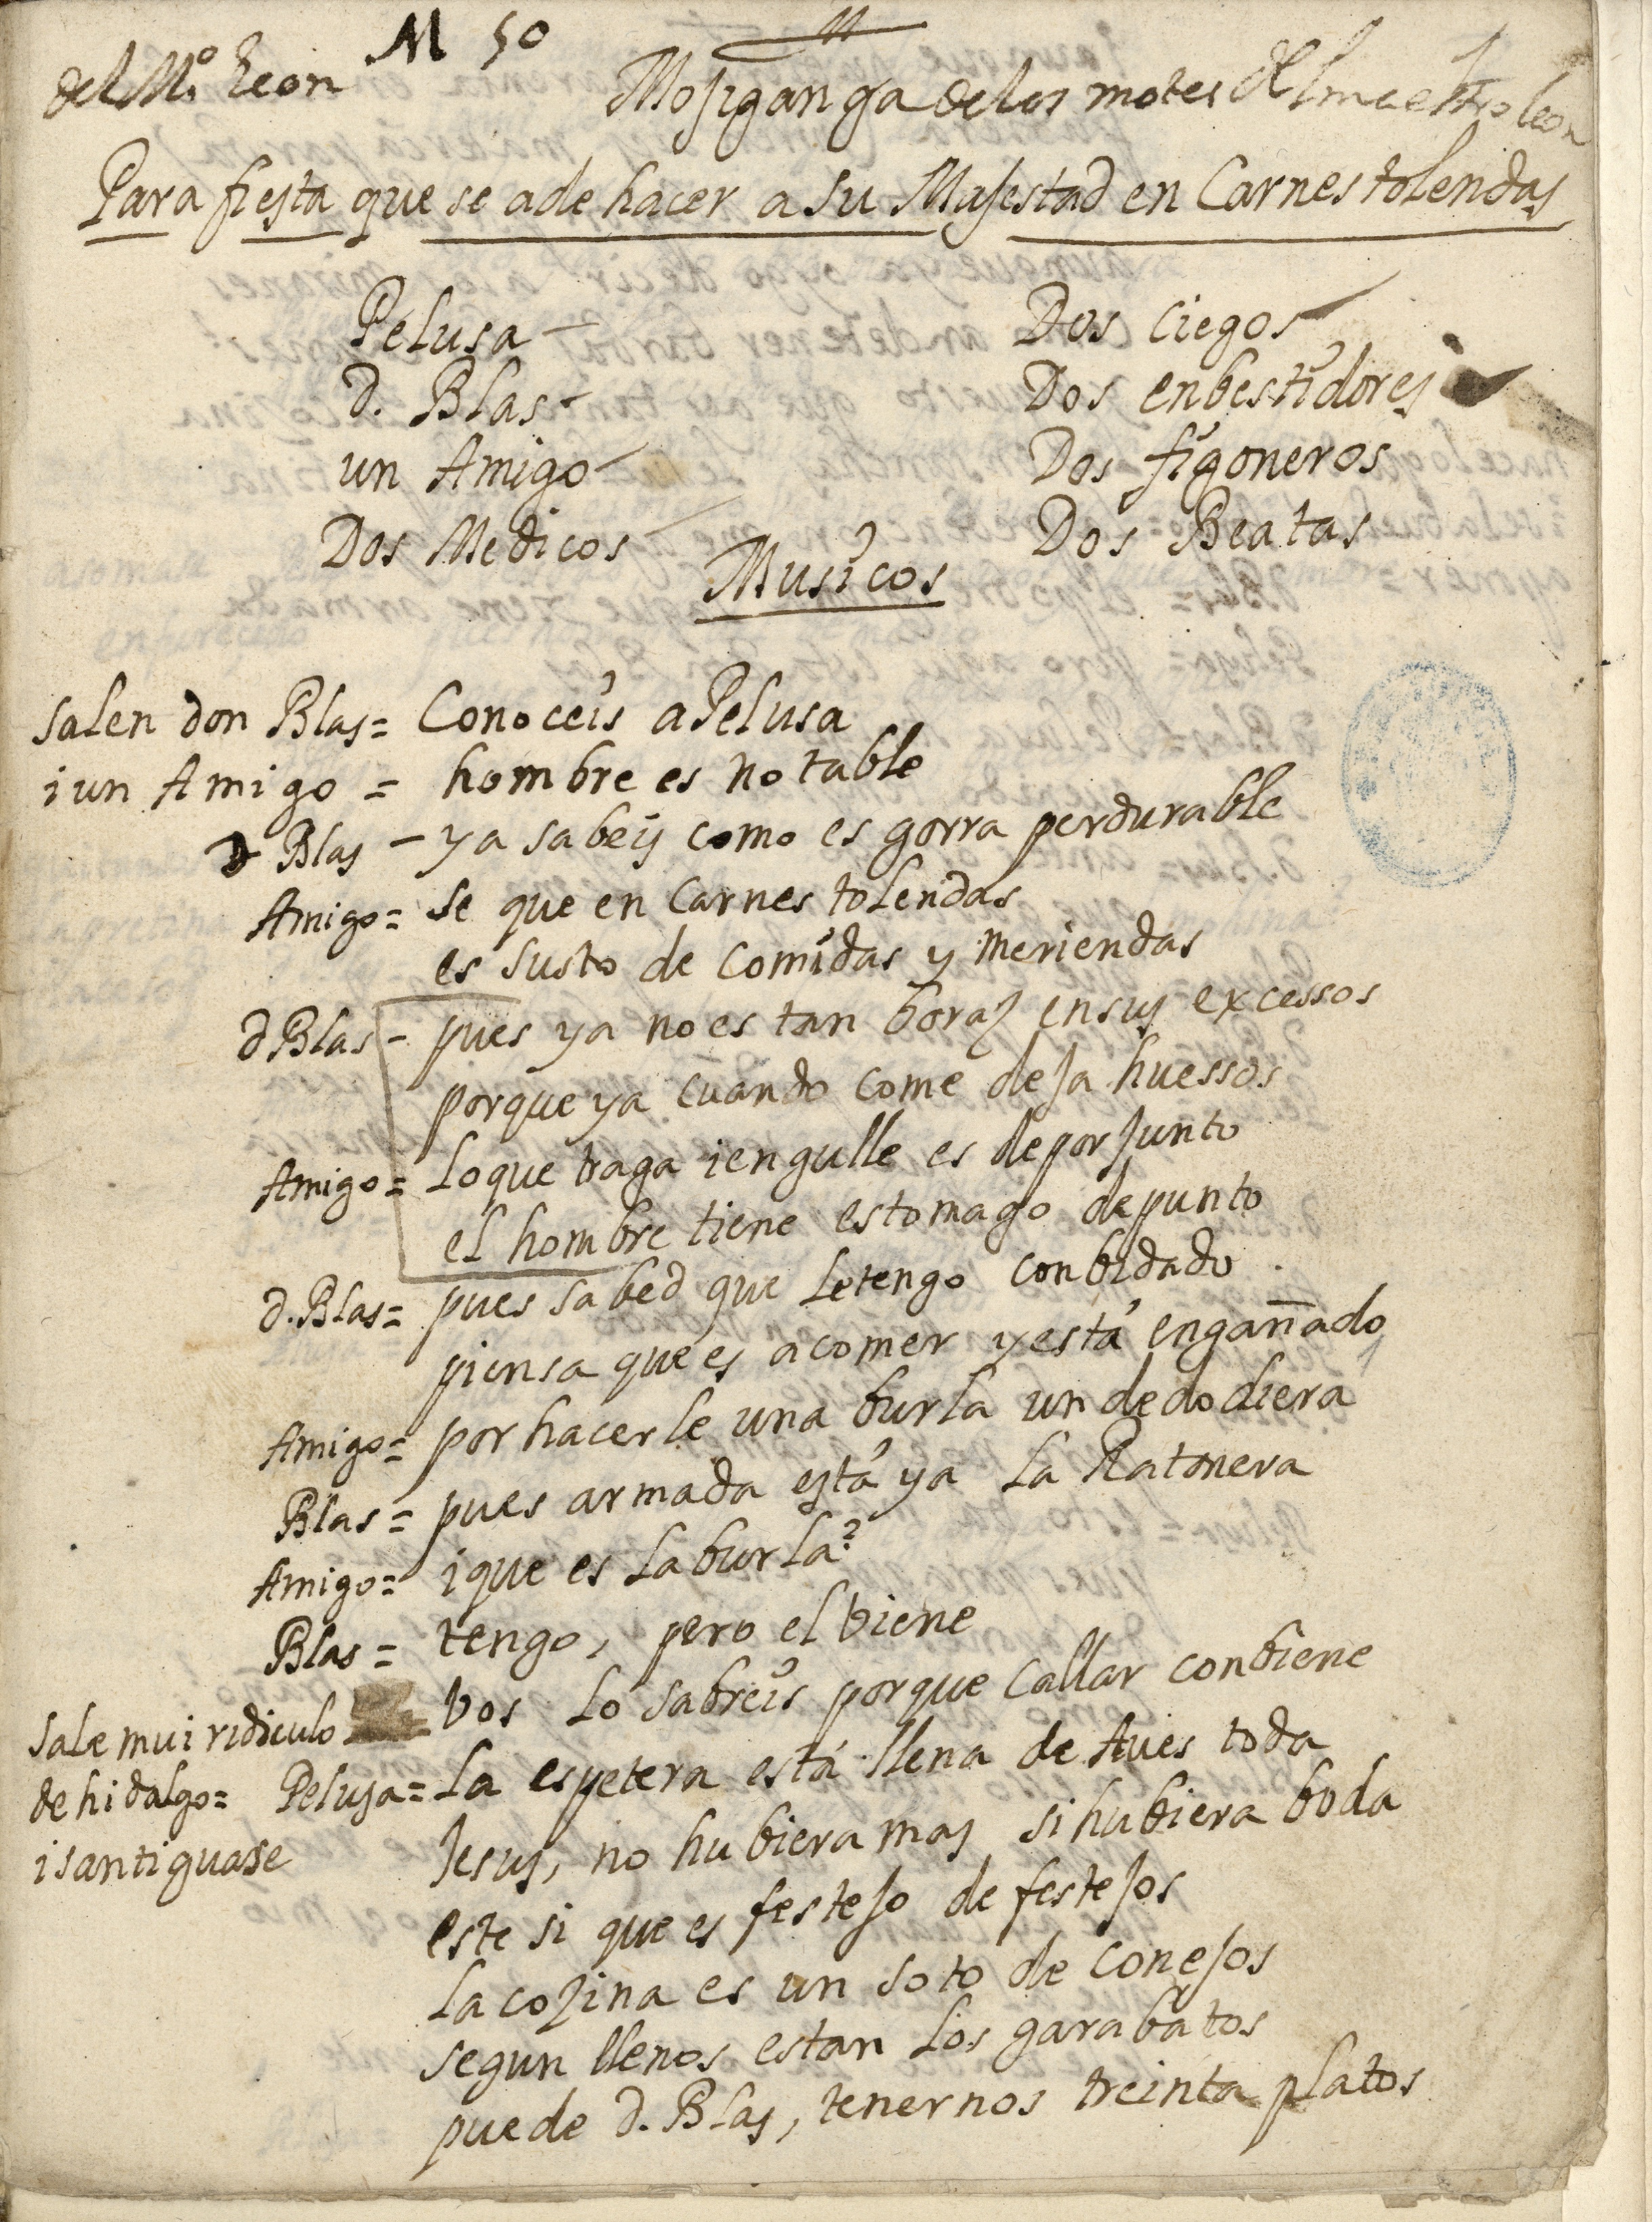 del Mº Leon
M 50
Mojiganga de los motes del maestro leon
Para fiesta que se a de hacer a su Majestad en Carnestolendas
Pelusa
d. Blas
un Amigo
Dos Medicos
Dos Ciegos
Dos enbestidores
Dos figoneros
Dos Beatas
Musicos
salen don Blas= Conoceis a Pelusa
i un Amigo = hombre es notable
D Blas - ya sabeis como es gorra perdurable
Amigo= se que en Carnestolendas
es susto de Comidas y meriendas
d Blas - pues ya no es tan boraz en sus excessos
porque ya cuando come deja huessos
Amigo= lo que traga i engulle es de por junto
el hombre tiene estomago de punto
d. Blas= pues sabed que le tengo conbidado
piensa que es a comer y está engañado
Amigo= por hacerle una burla un dedo diera
Blas= pues armada está ya la Ratonera
Amigo= i que es la burla?
Blas= tengo, pero el biene
bos lo sabreis porque callar conbiene
sale mui ridiculo
de hidalgo= Pelusa= La espetera está llena de Aues toda
i santiguase
Jesus, no hubiera mas si hubiera boda
este si que es festejo de festejos
la cozina es un soto de conejos
segun llenos estan los garabatos
puede d. Blas, tenernos treinta platos